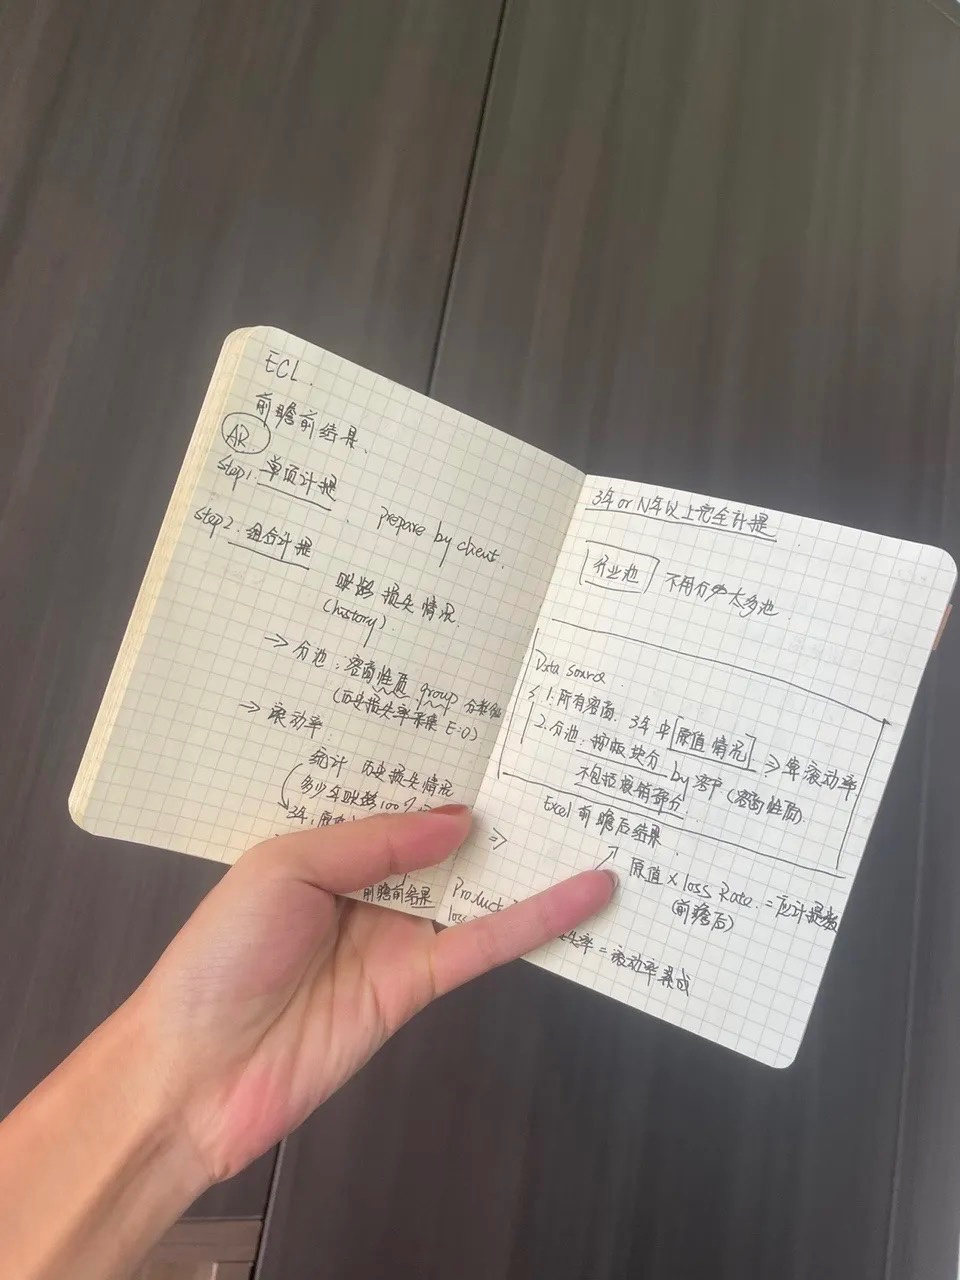 ECL.
前瞻前结果、
AR
Step1. 单项计提
prepare by client.
Step2. 组合计提
账龄 损失情况.
(history).
⇒ 分池：客商性质 group 分
(历史损失率 E:0)
⇒ 滚动率：
统计 历史损失情况
多少年账龄100%
3年，原
前瞻前结果
3年 or N年以上完全计提
分业池 不用分少太多池.
Data source.
1. 所有客商. 3年中[原值情况] ⇒ 算滚动率
2. 分池：按板块分 by 客户 (客商性质)
不包括核销部分.
Excel 前瞻后结果.
⇒
原值 × loss Rate. = 应计提数
(前瞻后)
Product
loss
失率 = 滚动率累成